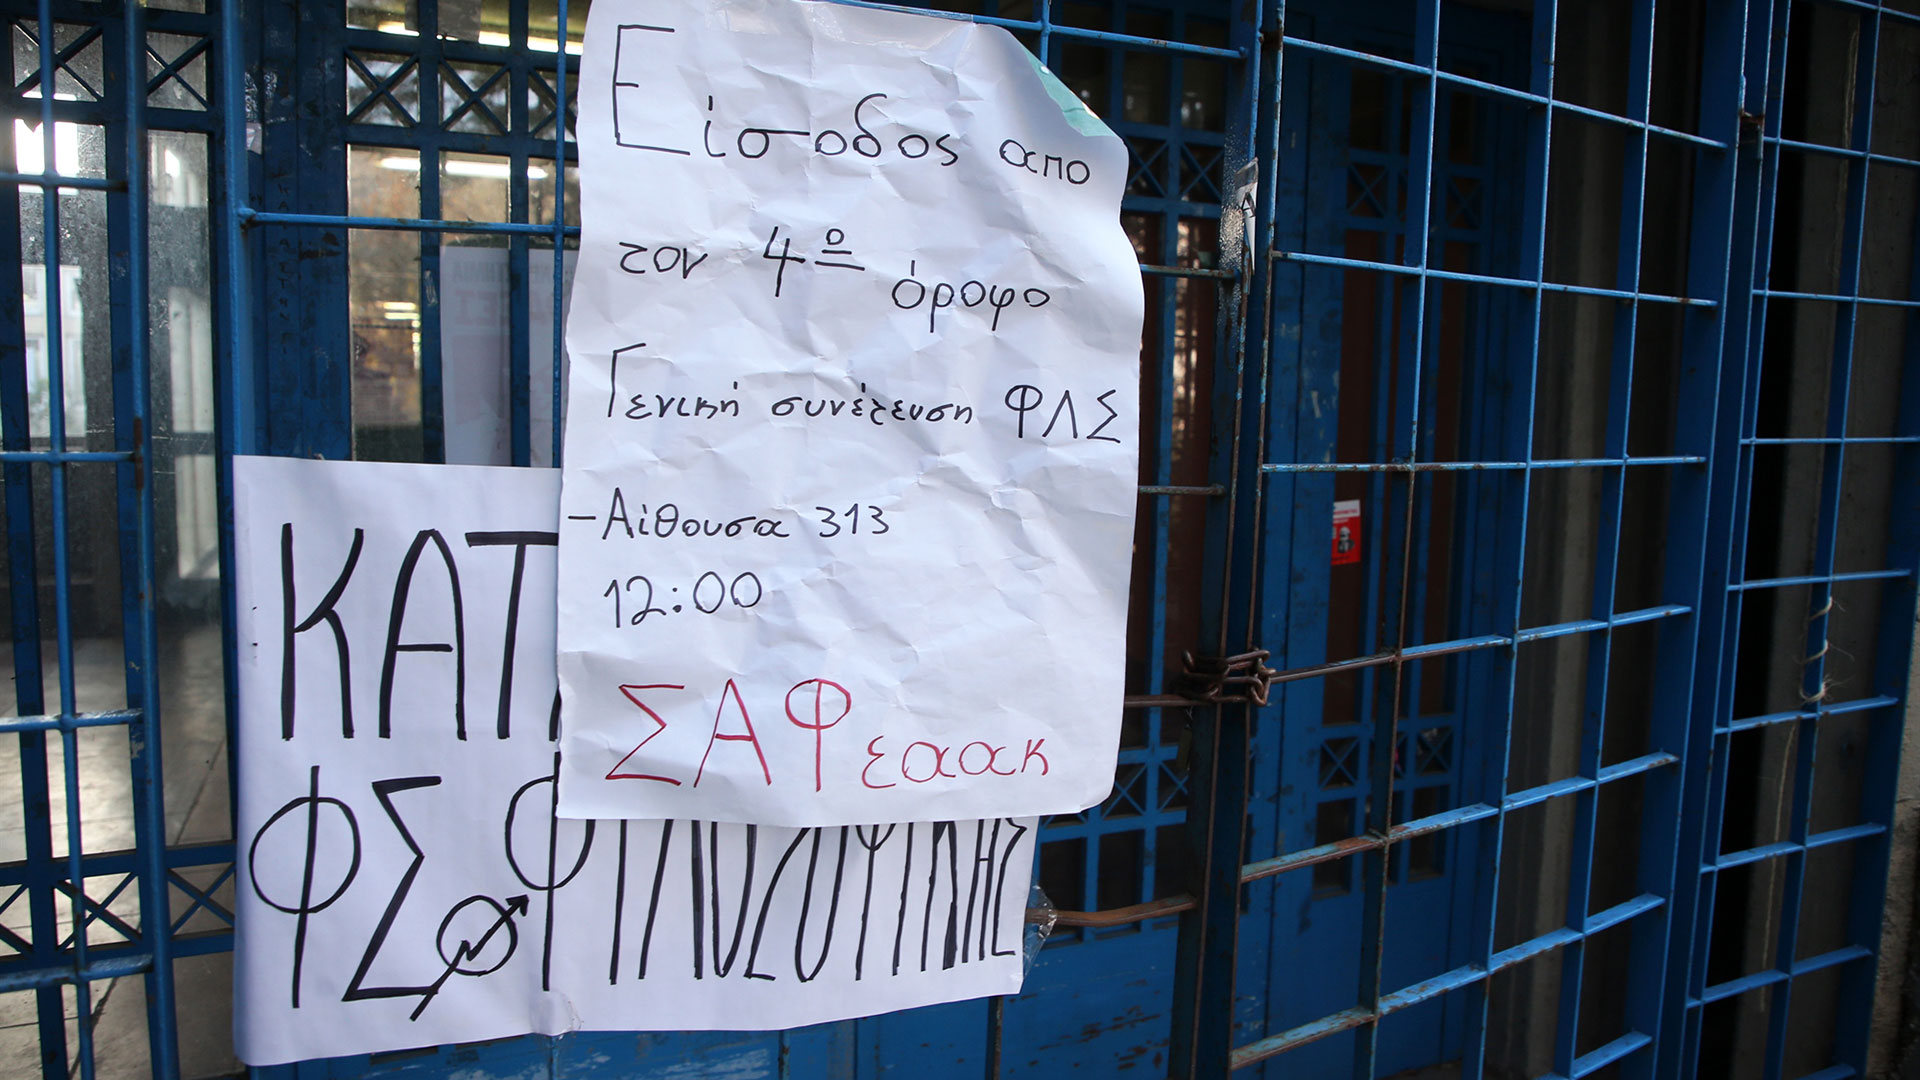 Είσοδος απο
τον 4º όροφο
Γενική συνέλευση ΦΛΣ
-Αίθουσα 313
12:00
ΣΑΦ εαακ
ΚΑΤ
ΦΣ ΦΙΛΟΣΟΦΙΚΗΣ